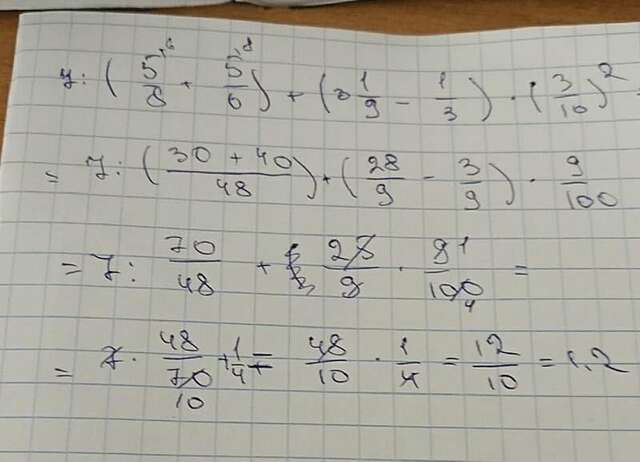 7 : (5/8 ⁶ + 5/6 ⁸) + (3 1/9 - 1/3) · (3/10)² =
= 7 : (30 + 40/48) + (28/9 - 3/9) · 9/100
= 7 : 70/48 + 25/9 · 9 1/100 4 =
= 7 · 48/70 10 + 1/4 = 48/10 · 1/4 = 12/10 = 1.2